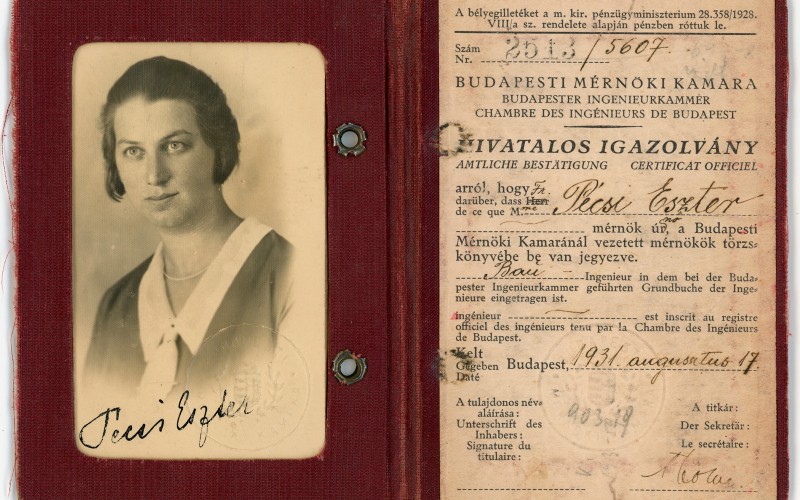 Pécsi Eszter
A bélyegilletéket a m. kir. pénzügyminiszterium 28.358/1928.
VIII/a sz. rendelete alapján pénzben róttuk le.
Szám
Nr. 2513/5607.
BUDAPESTI MÉRNÖKI KAMARA
BUDAPESTER INGENIEURKAMMER
CHAMBRE DES INGÉNIEURS DE BUDAPEST
HIVATALOS IGAZOLVÁNY
AMTLICHE BESTÄTIGUNG CERTIFICAT OFFICIEL
arról, hogy Fr.
darüber, dass Herr Pécsi Eszter
de ce que M.me
nő
mérnök úr, a Budapesti
Mérnöki Kamaránál vezetett mérnökök törzs-
könyvébe be van jegyezve.
Bau Ingenieur in dem bei der Buda-
pester Ingenieurkammer geführten Grundbuche der Inge-
nieure eingetragen ist.
ingénieur est inscrit au registre
officiel des ingénieurs tenu par la Chambre des Ingénieurs
de Budapest.
Kelt
Gegeben Budapest, 1931. augusztus 17.
Daté
A tulajdonos név-
aláírása:
Unterschrift des
Inhabers:
Signature du
titulaire:
903-19
A titkár:
Der Sekretär:
Le secrétaire: